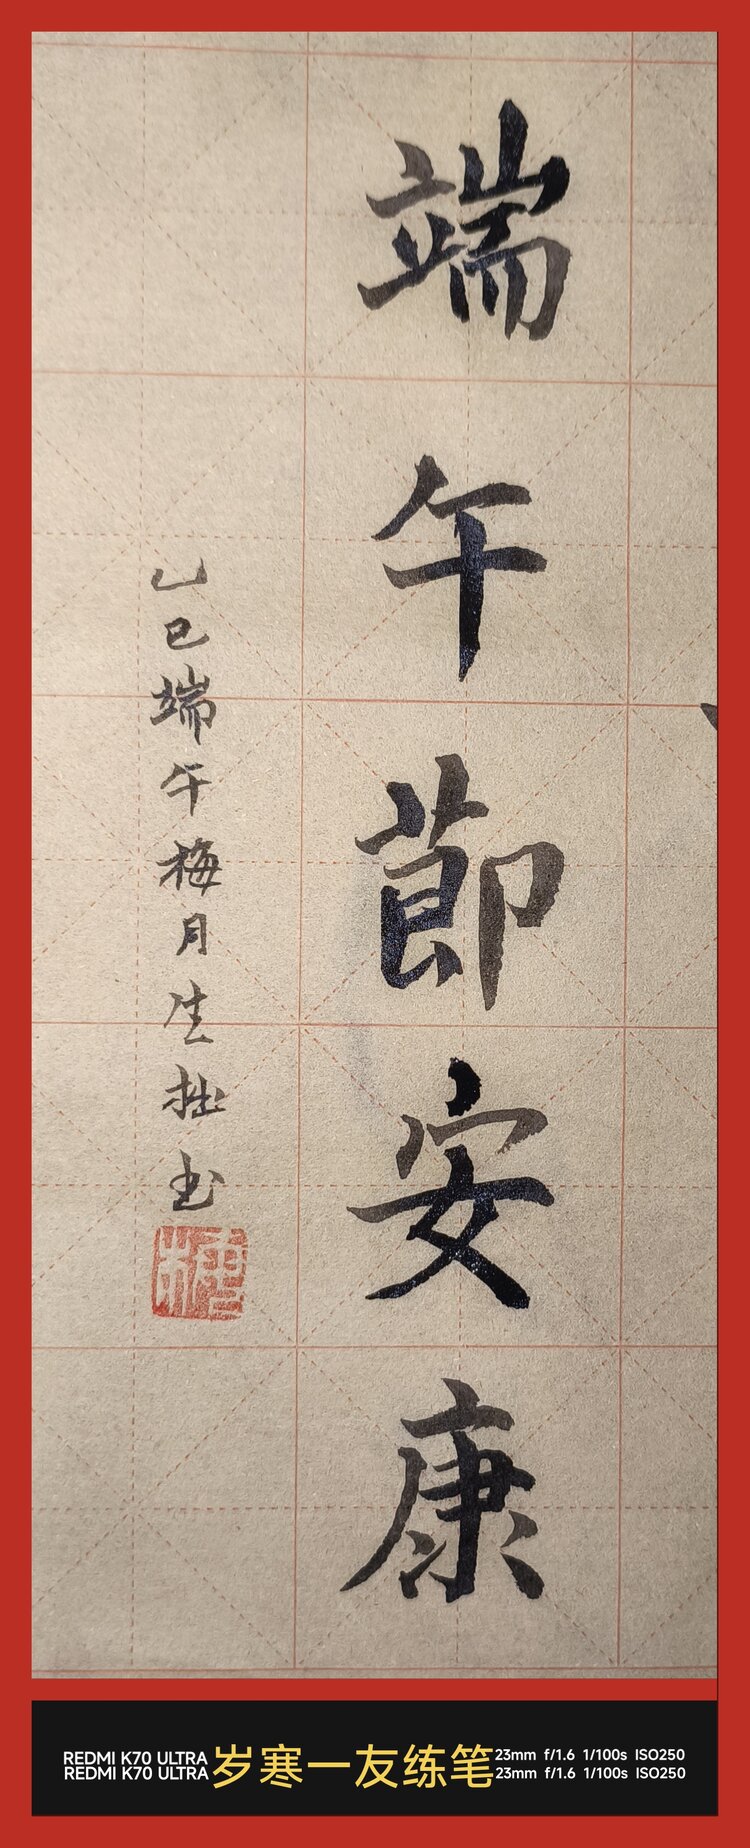 端午節安康
乙巳端午梅月生拙书
REDMI K70 ULTRA
REDMI K70 ULTRA
岁寒一友练笔
23mm f/1.6 1/100s ISO250
23mm f/1.6 1/100s ISO250